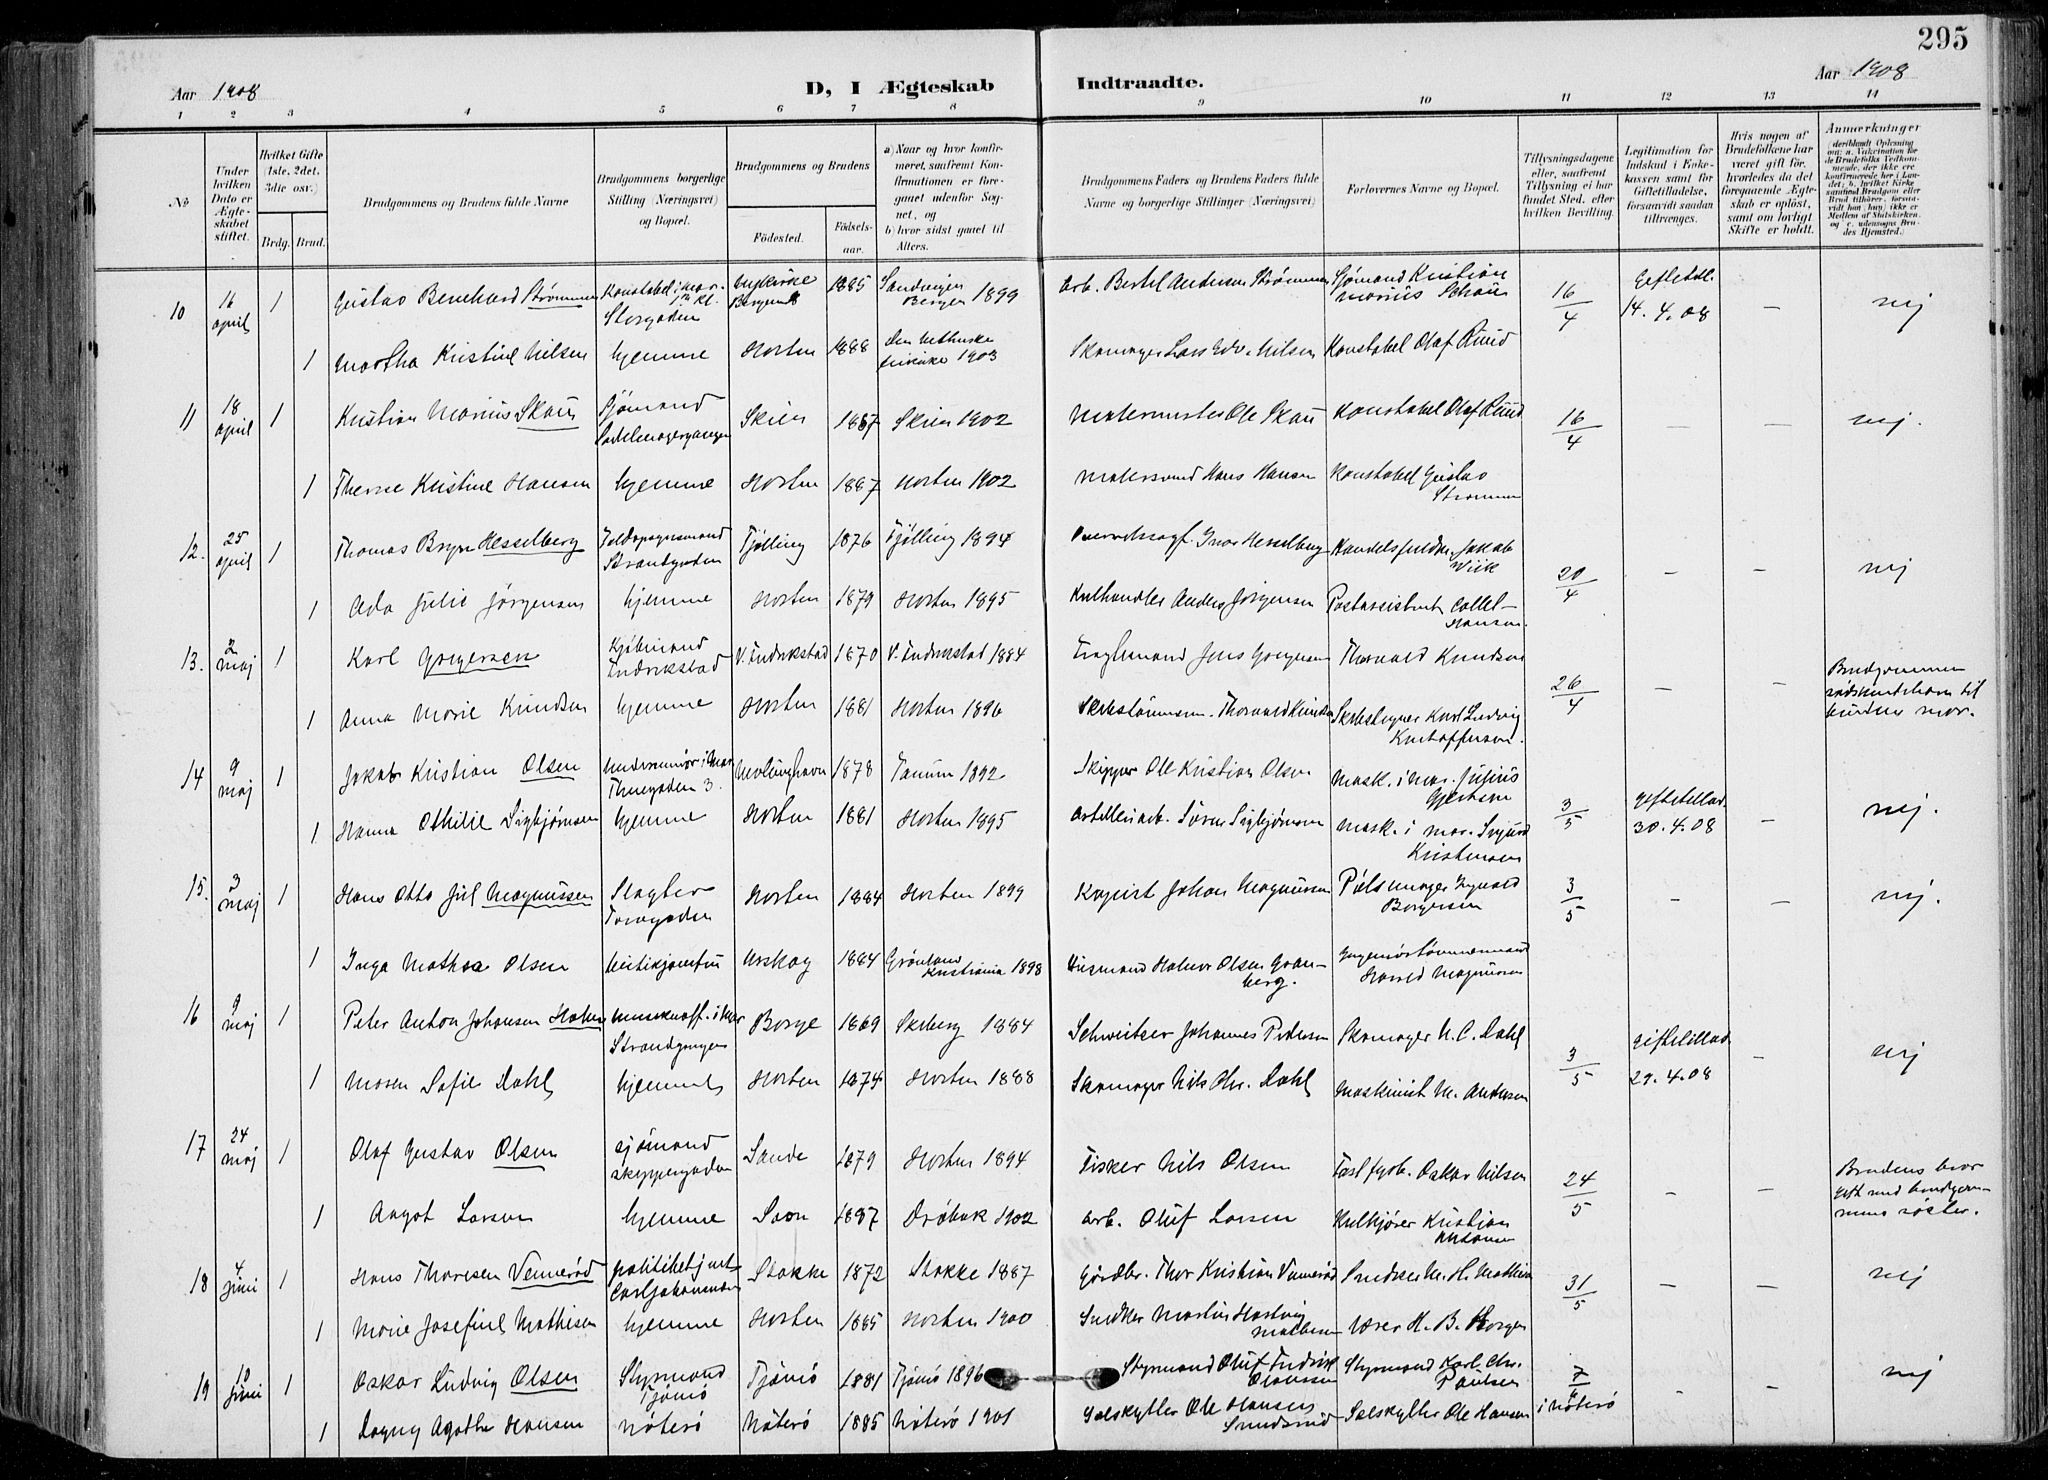 295
Aar 1908
D, I Ægteskab
Indtraadte.
Aar 1908
1 2 3 4 5 6 7 8 9 10 11 12 13 14
No
Under hvilken Dato er Ægteskabet stiftet.
Hvilket Gifte (1ste, 2det, 3die osv.)
Brdg. Brud.
Brudgommens og Brudens fulde Navne
Brudgommens borgerlige Stilling (Næringsvei) og Bopæl.
Brudgommens og Brudens
Fødested.
Fødselsaar.
a) Naar og hvor konfirmeret, saafremt Konfirmationen er foregaaet udenfor Sognet, og
b) hvor sidst gaaet til Alters.
Brudgommens Faders og Brudens Faders fulde Navne og borgerlige Stillinger (Næringsvei)
Forlovernes Navne og Bopæl.
Tillysningsdagene eller, saafremt Tillysning ei har fundet Sted, efter hvilken Bevilling.
Legitimation for Indskud i Enkekassen samt for Giftetilladelse, forsaavidt saadan tiltrænges.
Hvis nogen af Brudefolkene har været gift før, hvorledes da det foregaaende Ægteskab er opløst, samt om lovligt Skifte er holdt.
Anmærkninger
10 16 april 1 Gustav Bernhard Strømmen Konstabel i mar. 1ste kl. Storgaden Nykirke Bergen 1885 Sandvigen Bergen 1899 Arb. Bertel Andersen Strømmen Sjømand Kristian Marius Schau 16/4 Giftetill. 14.4.08 — nej
1 Martha Kristine Nilsen hjemme Horten 1888 Den methodiske frikirke 1903 Skomager Lars Edv. Nilsen Konstabel Olaf Ruud
11 18 april 1 Kristian Marius Skau Sjømand Sadelmagergangen Skien 1887 Skien 1902 Malermester Ole Skau Konstabel Olaf Ruud 16/4 — — nej.
1 Therese Kristine Hansen hjemme Horten 1887 Horten 1902 Malersvend Hans Hansen Konstabel Gustav Strømmen
12. 25 april 1 Thomas Bryn Hesselberg Strandgaden Tjølling 1876 Tjølling 1894 Ivar Hesselberg Handelsfuldm. Jakob Wiik 20/4 — — nej
1 Ada Julie Jørgensen hjemme Horten 1879 Horten 1895 Kulhandler Anders Jørgensen Postassistent Collet-Hansen.
13. 2 maj 1 Karl Gregersen Kjøbmand Fredrikstad V. Fredrikstad 1870 V. Fredrikstad 1884 Fraghtmand Jens Gregersen Thorvald Knudsen 26/4 — — Brudgommen til brudens mor.
1 Anna Marie Knudsen hjemme Horten 1881 Horten 1896 Skibstømmerm. Thorvald Knudsen Skibstegner Karl Ludvig Kristoffersen.
14 9 maj 1 Jakob Kristian Olsen Underminør i Mar. Thuegaden 3. 1878 Tanum 1892 Skipper Ole Kristian Olsen Mask. i Mar. Julius Gjertsen 3/5 Giftetillad. 30.4.08 — nej.
1 Hanna Othilie Sigbjørnsen hjemme Horten 1881 Horten 1895 Artilleriarb. Søren Sigbjørnsen Mask. i Mar. Sigurd Kristensen
15. 3 maj 1 Hans Otto Juel Magnussen Slagter Torvegaden Horten 1884 Horten 1899 Kopist Johan Magnussen Pølsemager Ingvald Borgersen 3/5 — — nej.
1 Inga Mathea Olsen Urskog 1884 Grønland Kristiania 1898 Husmand Halvor Olsen Granberg. Ingeniørtømmermand Harald Magnussen
16 9 maj 1 Peter Anton Johansen Holm i Mar Strandgangen Borge 1869 Skeberg 1884 Schweitzer Johannes Pedersen Skomager N. C. Dahl 3/5 Giftetillad. 29.4.08 — nej
1 Maren Sofie Dahl hjemme Horten 1874 Horten 1888 Skomager Nils Chr. Dahl Maskinist M. Andersen
17 24 maj 1 Olaf Gustav Olsen Sjømand Skippergaden Sande 1879 Horten 1894 Fisker Nils Olsen Oskar Nilsen 24/5 — — Brudens bror gift med brudgommens søster.
1 Aagot Larsen hjemme Soon 1887 Drøbak 1902 Arb. Oluf Larsen Kulkjører Kristian Antonsen
18 4 juni 1 Hans Thoresen Vennerød Politibetjent Carl Johansgaden Stokke 1872 Stokke 1887 Gårdbr. Thor Kristian Vennerød Snedker M. H. Mathisen 31/5 — — nej
1 Marie Josefine Mathisen hjemme Horten 1885 Horten 1900 Snedker Martin Hartvig Mathisen Lærer H. B. Horgen
19 10 juni 1 Oskar Ludvig Olsen Styrmand Tjømø Tjømø 1881 Tjømø 1896 Styrmand Oluf Fredrik Olaussen Styrmand Karl Chr. Paulsen 7/6 i Nøterø — — nej
1 Dagny Agathe Hansen Nøterø Nøterø 1885 Nøterø 1901 Sælskytter Ole Hansen Smidsrød Sælskytter Ole Hansen